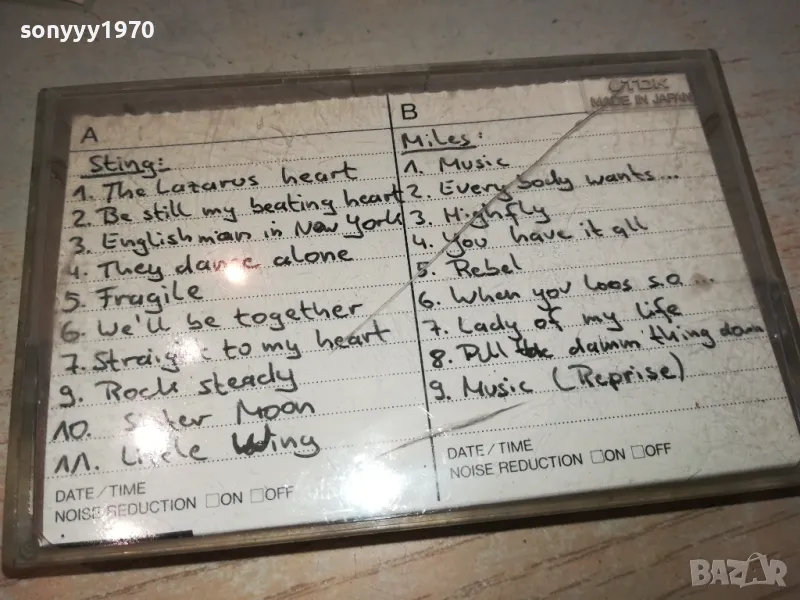 sonyyy1970
TDK
MADE IN JAPAN
A
Sting:
1. The Lazarus heart
2. Be still my beating heart
3. Englishman in New York
4. They dance alone
5. Fragile
6. We'll be together
7. Straight to my heart
9. Rock steady
10. Sister Moon
11. Little Wing
DATE/TIME
NOISE REDUCTION ☐ON ☐OFF
B
Miles:
1. Music
2. Every body wants...
3. Highfly
4. You have it all
5. Rebel
6. When you loos s.o...
7. Lady of my life
8. Pull the damm thing down
9. Music (Reprise)
DATE/TIME
NOISE REDUCTION ☐ON ☐OFF
BAZAR